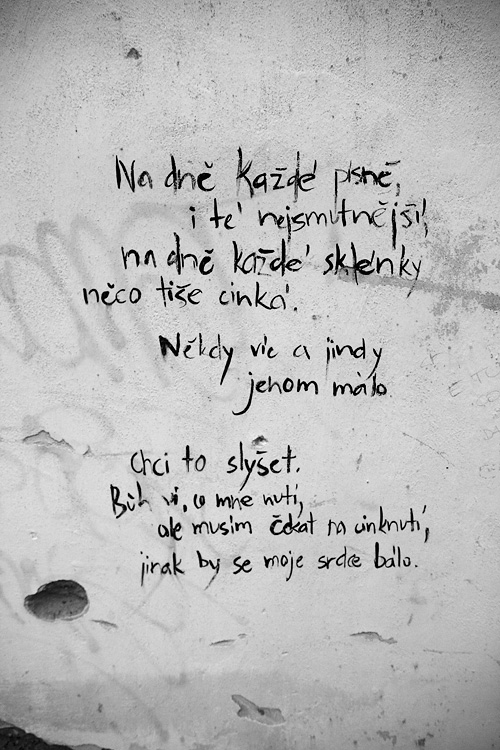 Na dně každé písně,
i té nejsmutnější,
na dně každé sklenky
něco tiše cinká.
Někdy víc a jindy
jenom málo
Chci to slyšet.
Bůh ví, co mne nutí,
ale musím čekat na cinknutí,
jinak by se moje srdce bálo.